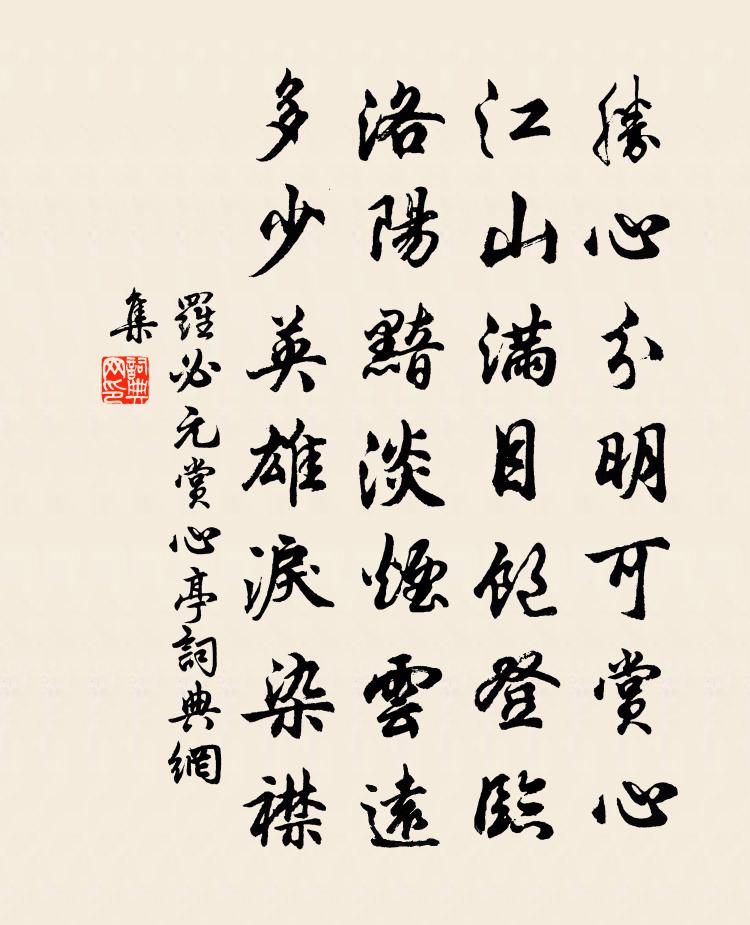 勝心分明可賞心
江山滿目飽登臨
洛陽黯淡煙雲遠
多少英雄淚染襟
羅必元賞心亭詞典網
集
詞典
网印